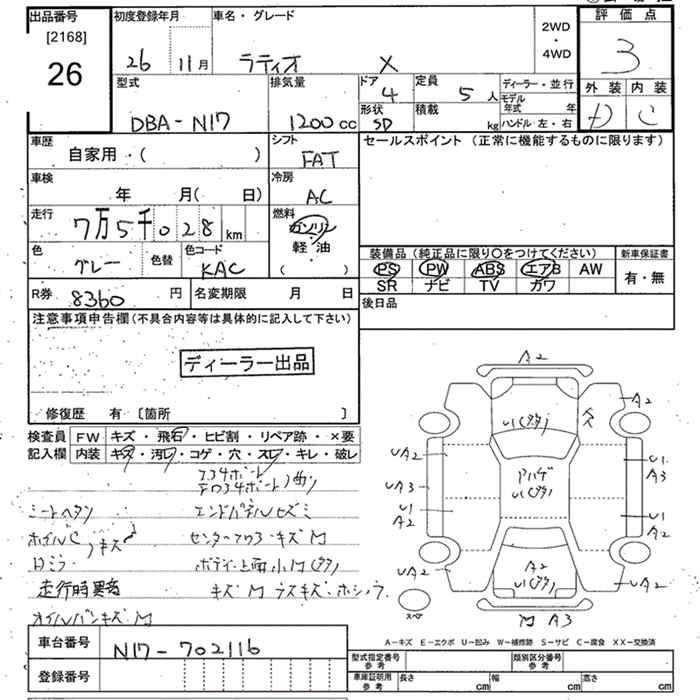 出品番号
[2168]
26
初度登録年月
26 11月
車名・グレード
ラティオ X
2WD
・
4WD
評価点
3
外装 内装
D C
型式
DBA-N17
排気量
1200cc
ドア
4
定員
5人
形状
SD
積載
kg
ディーラー・並行
モデル年式 年
ハンドル 左・右
車歴
自家用・( )
シフト
FAT
セールスポイント (正常に機能するものに限ります)
車検
年 月( 日)
冷房
AC
走行
7万5千028km
燃料
ガソリン
・
軽・油
( )
色
グレー
色替
色コード
KAC
装備品 (純正品に限り○をつけてください)
新車保証書
PS PW ABS エアB AW
SR ナビ TV カワ
有・無
R券
8360円
名変期限 月 日
後日品
注意事項申告欄(不具合内容等は具体的に記入して下さい)
ディーラー出品
修復歴 有 [箇所 ]
検査員
記入欄
FW キズ・飛石・ヒビ割・リペア跡・×要
内装 キズ・汚レ・コゲ・穴・スレ・キレ・破レ
シートヘタシ
エンドパネルヒズミ
キズ
キズM
ボディ上面小M(多)
走行時異音
キズM
オイルパンキズM
A2
A2
UA2
UA3
U1
A2
UA2
U1
A3
U1
A2
UA2
アハゲ
U1(多)
A2
M A3
スペア
A-キズ E-エクボ U-凹み W-補修跡 S-サビ C-腐食 XX-交換済
車台番号
N17-702116
登録番号
型式指定番号
参考
類別区分番号
参考
車庫証明用
参考
長さ cm
幅 cm
高さ cm